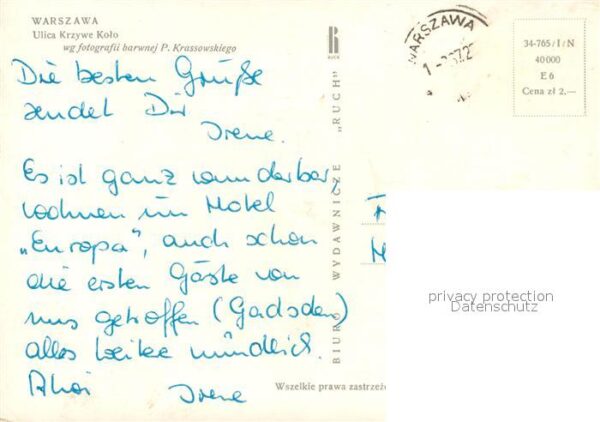 WARSZAWA
Ulica Krzywe Koło
wg fotografii barwnej P. Krassowskiego
Die besten Grüße
sendet Dir
Irene.
Es ist ganz wunderbar,
wohnen im Hotel
„Europa", auch schon
die ersten Gäste von
uns getroffen (Gadsden)
alles weitere mündlich.
Ahoi Irene
RUCH
BIURO WYDAWNICZE „RUCH"
WARSZAWA
34-765/I/N
40000
E 6
Cena zł 2.—
privacy protection
Datenschutz
Wszelkie prawa zastrzeż